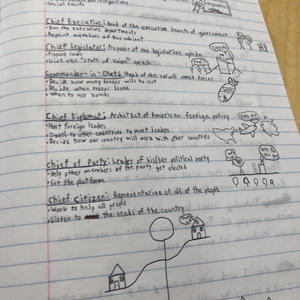 Social Events
Chief Executive: Head of the executive branch of government
- Run the executive departments
- Appoint members of his cabinet
Chief Legislator: Proposer of the legislative agenda
- Propose laws
- Give the "State of Union" speech
Commander-in-Chief: Head of the armed forces
- Decide how many troops will be sent
- Decide when troops leave
- When to use bombs
Chief Diplomat: Architect of American foreign policy
- Host foreign leaders
- Travel to other countries to meet leaders
- Decide how our country will work with other countries
Chief of Party: Leader of his/her political party
- Help other members of the party get elected
- Set the platform
Chief Citizen: Representative of all the people
- Work to help all people
- Listen to the needs of the country